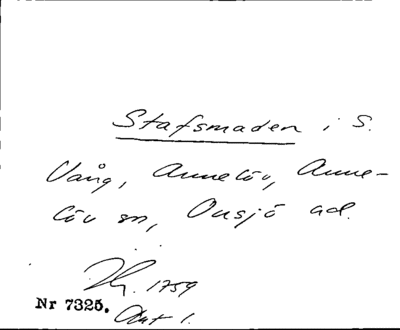 Stafsmaden i S.
Vång, Annelöv, Anne-
löv sn, Onsjö hd.
1759
Nr 7325. Akt 1.